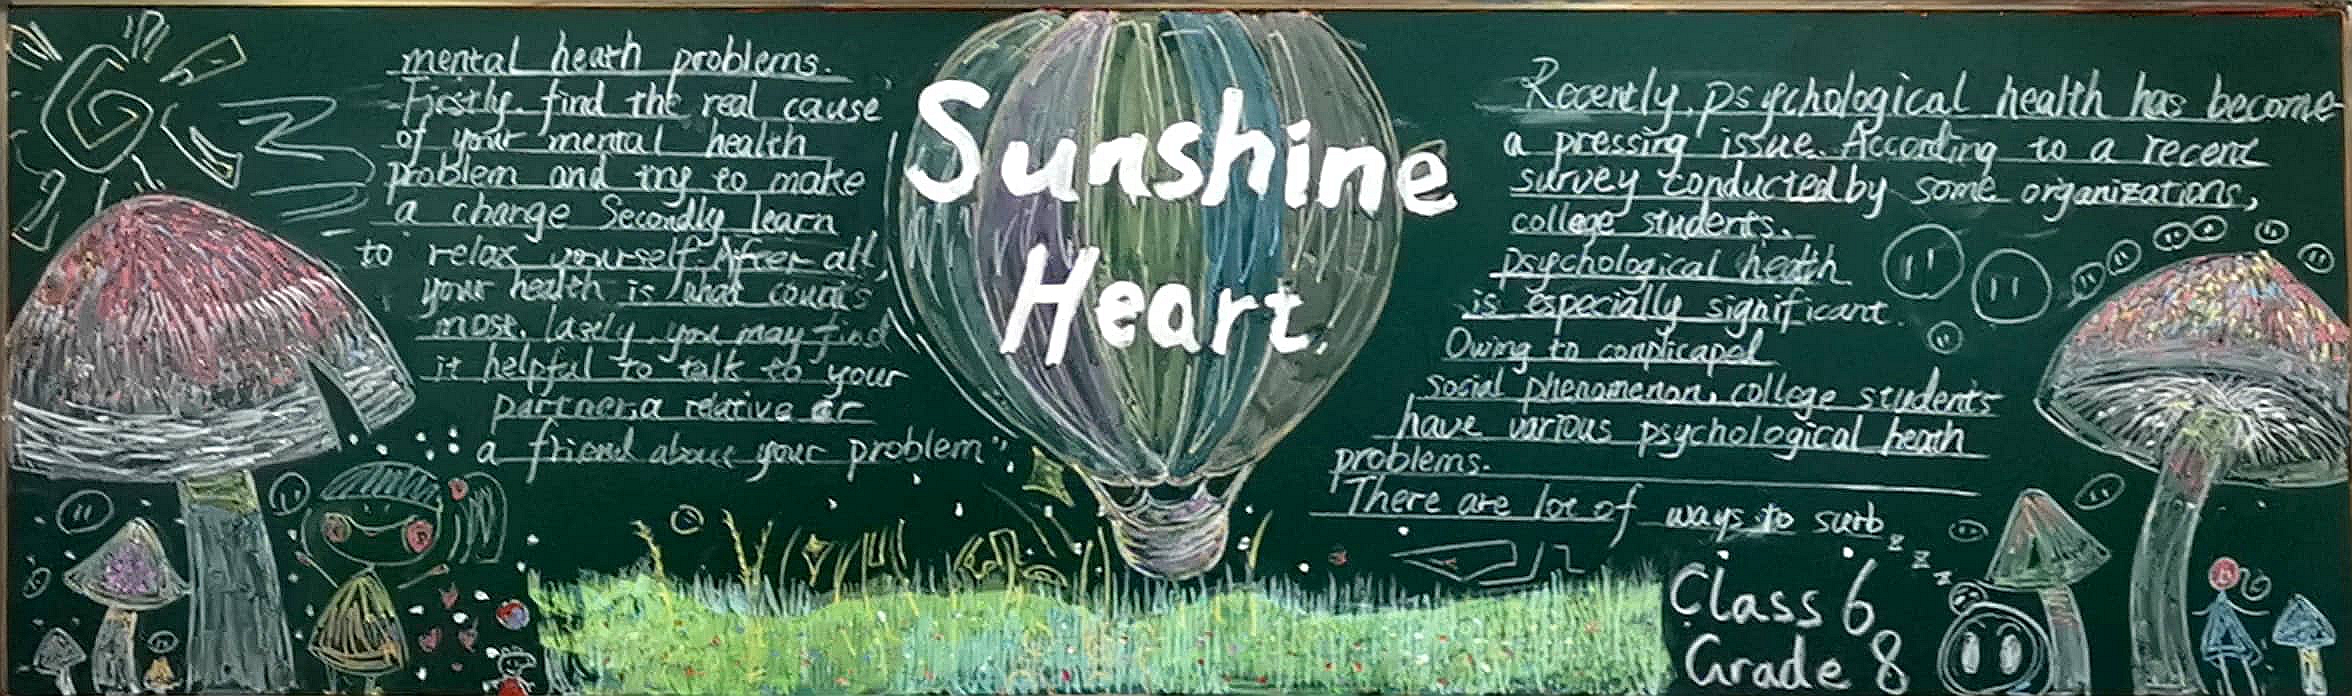 mental heath problems.
Firstly. find the real cause
of your mental health
problem and try to make
a change Secondly learn
to relax yourself. After all,
your health is what counts
most. lastly. you may find
it helpful to talk to your
partner, a relative or
a friend about your problem"
Sunshine
Heart.
Recently, psychological health has become
a pressing issue. According to a recent
survey conducted by some organizations,
college students.
psychological heath
is especially significant.
Owing to complicaped
social phenomenon, college students
have various psychological heath
problems.
There are lot of ways to surb
z z z
Class 6
Grade 8